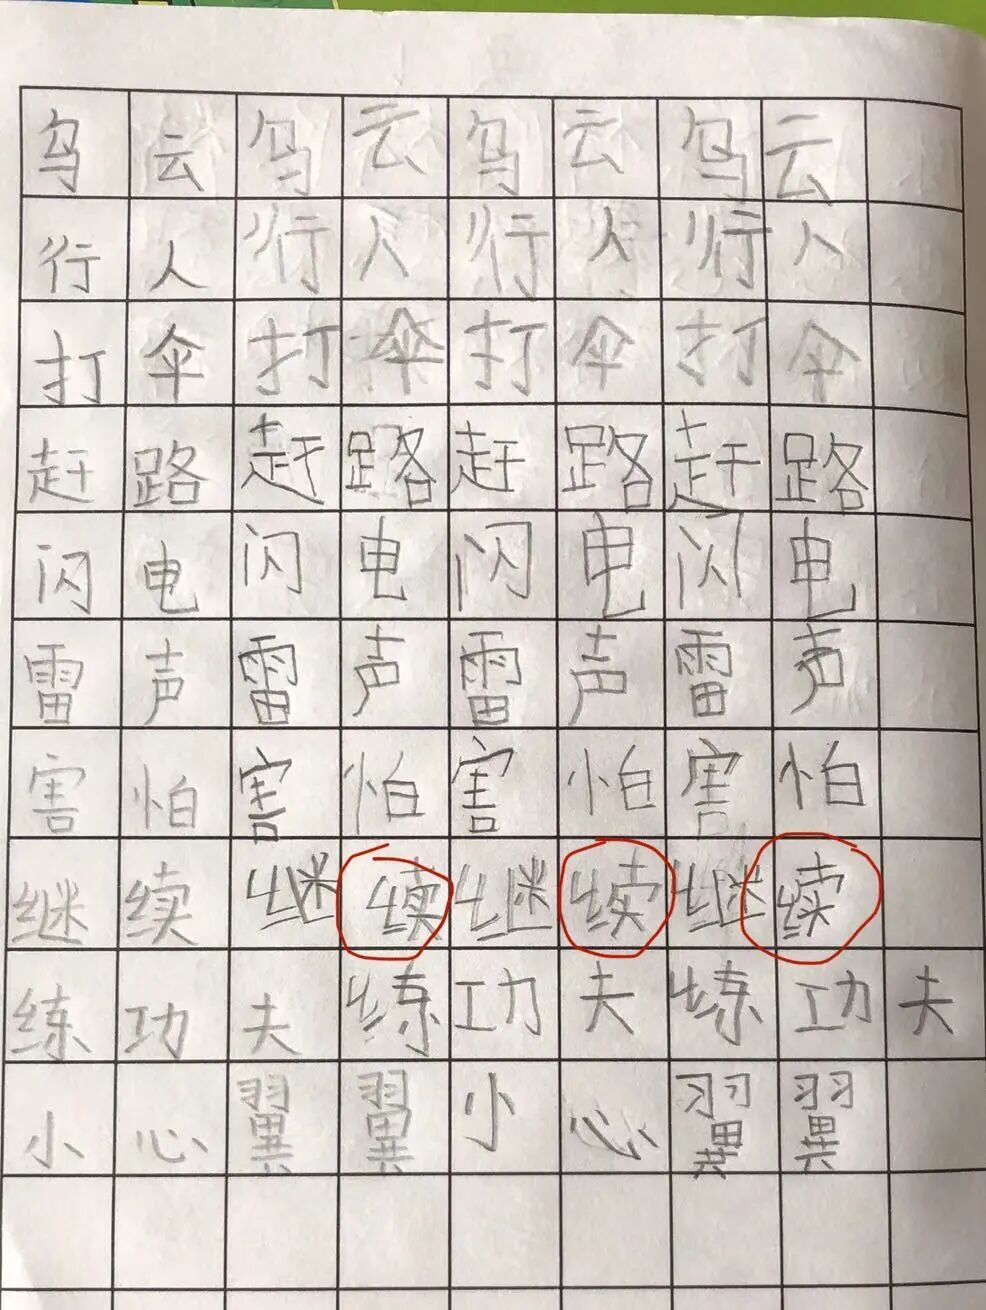 乌云乌云乌云乌云
行人行人行人行人
打伞打伞打伞打伞
赶路赶路赶路赶路
闪电闪电闪电闪电
雷声雷声雷声雷声
害怕害怕害怕害怕
继续继续继续继续
练功夫练功夫练功夫
小心翼翼小心翼翼